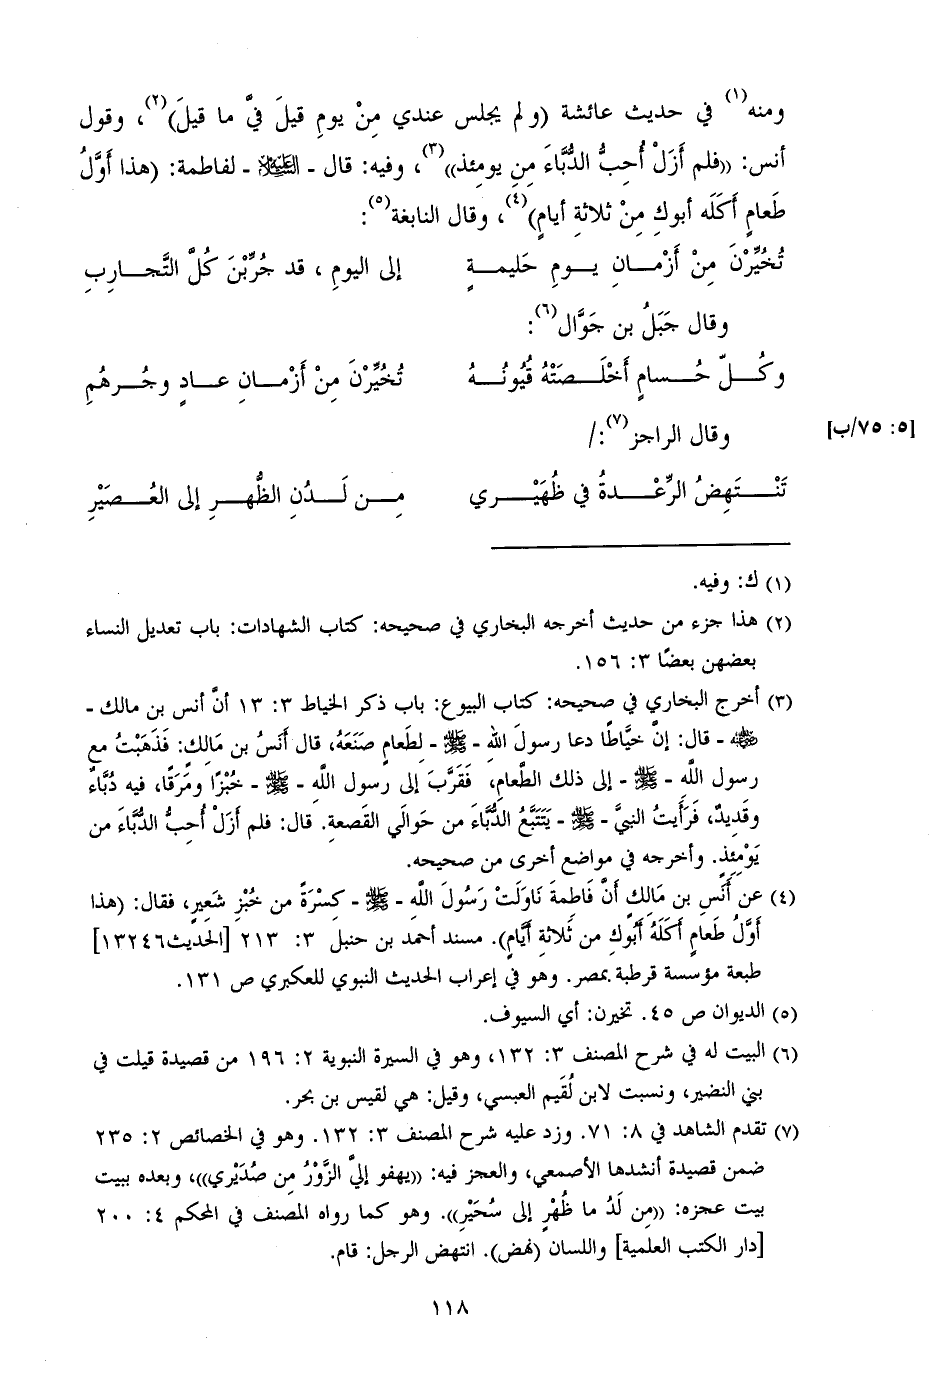 ومنه(١) في حديث عائشة (ولم يجلس عندي مِنْ يومِ قيلَ فيَّ ما قيلَ)(٢)، وقول
أنس: ((فلم أَزَلْ أُحِبُّ الدُّبَّاءَ مِنِ يومئذ))(٣)، وفيه: قال - عليه السلام - لفاطمة: (هذا أَوَّلُ
طَعامٍ أَكَلَه أبوكِ مِنْ ثلاثةِ أيامٍ)(٤)، وقال النابغة(٥):
تُخُيِّرْنَ مِنْ أَزْمــانِ يــومِ حَليمــةٍ إلى اليومِ ، قد جُرِّبْنَ كُلَّ التَّجــارِبِ
وقال جَبَلُ بن جَوَّال(٦):
وكُــلّ حُــسامٍ أَخْلَــصَتْهُ قُيُونُــهُ تُخُيِّرْنَ مِنْ أَزْمــانِ عــادٍ وجُــرهُمِ
وقال الراجز(٧):/
[٥: ٧٥/ب]
تَنْــتَهِضُ الرِّعْــدةُ في ظُهَيْــري مِــن لَــدُنِ الظُّهــرِ إلى العُــصَيْرِ
(١) ك: وفيه.
(٢) هذا جزء من حديث أخرجه البخاري في صحيحه: كتاب الشهادات: باب تعديل النساء
بعضهن بعضًا ٣: ١٥٦.
(٣) أخرج البخاري في صحيحه: كتاب البيوع: باب ذكر الخياط ٣: ١٣ أنَّ أنس بن مالك -
رضي الله عنه - قال: إنَّ خيَّاطًا دعا رسولَ اللهِ - ﷺ - لِطَعامٍ صَنَعَهُ، قال أَنَسُ بن مَالِك: فَذَهَبْتُ مع
رسول اللَّهِ - ﷺ - إلى ذلك الطَّعامِ، فَقَرَّبَ إلى رسول اللَّهِ - ﷺ - خُبْزًا ومَرَقًا، فيه دُبَّاءٌ
وقَدِيدٌ، فَرَأَيتُ النبيَّ - ﷺ - يَتَتَبَّعُ الدُّبَّاءَ من حَوالَي القَصعةِ. قال: فلم أَزَلْ أُحِبُّ الدُّبَّاءَ من
يَوْمِئِذٍ. وأخرجه في مواضع أخرى من صحيحه.
(٤) عن أَنَسِ بن مَالِكٍ أَنَّ فَاطِمةَ نَاوَلَتْ رَسُولَ اللَّهِ - ﷺ - كِسْرَةً من خُبْزِ شَعِيرٍ، فقال: (هذا
أَوَّلُ طَعامٍ أَكَلَهُ أَبُوكِ من ثَلاثةِ أَيَّامٍ). مسند أحمد بن حنبل ٣: ٢١٣ [الحديث١٣٢٤٦]
طبعة مؤسسة قرطبة بمصر. وهو في إعراب الحديث النبوي للعكبري ص ١٣١.
(٥) الديوان ص ٤٥. تخيرن: أي السيوف.
(٦) البيت له في شرح المصنف ٣: ١٣٢، وهو في السيرة النبوية ٢: ١٩٦ من قصيدة قيلت في
بني النضير، ونسبت لابن لُقَيم العبسي، وقيل: هي لقيس بن بحر.
(٧) تقدم الشاهد في ٨: ٧١. وزد عليه شرح المصنف ٣: ١٣٢. وهو في الخصائص ٢: ٢٣٥
ضمن قصيدة أنشدها الأصمعي، والعجز فيه: ((يهفو إليَّ الزَّوْرُ مِن صُدَيْري))، وبعده ببيت
بيت عجزه: ((مِن لَدُ ما ظُهْرٍ إلى سُحَيْرِ)). وهو كما رواه المصنف في المحكم ٤: ٢٠٠
[دار الكتب العلمية] واللسان (نهض). انتهض الرجل: قام.
١١٨